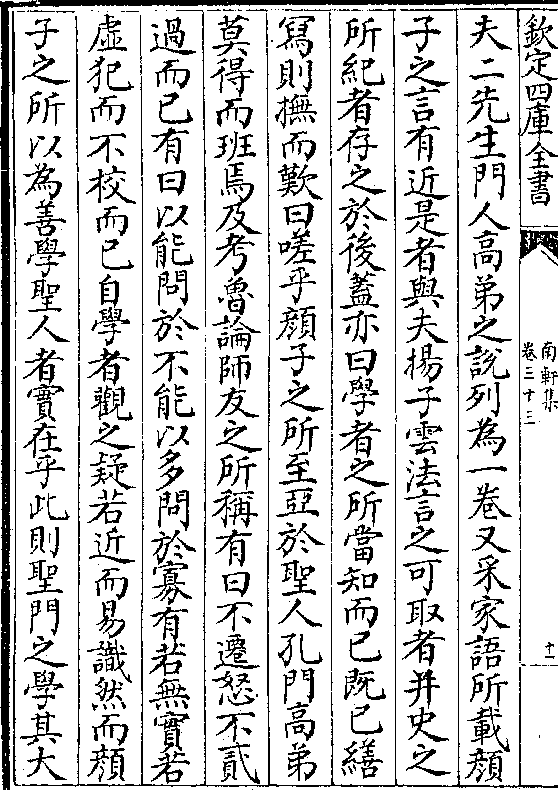 欽定四庫全書
南軒集
卷三十三
十一
夫二先生門人高弟之說列為一卷又采家語所載顏
子之言有近是者與夫揚子雲法言之可取者并史之
所紀者存之於後蓋亦曰學者之所當知而已既已繕
寫則撫而歎曰嗟乎顏子之所至亞於聖人孔門高弟
莫得而班焉及考魯論師友之所稱有曰不遷怒不貳
過而已有曰以能問於不能以多問於寡有若無實若
虛犯而不校而已自學者觀之疑若近而易識然而顏
子之所以為善學聖人者實在乎此則聖門之學其大